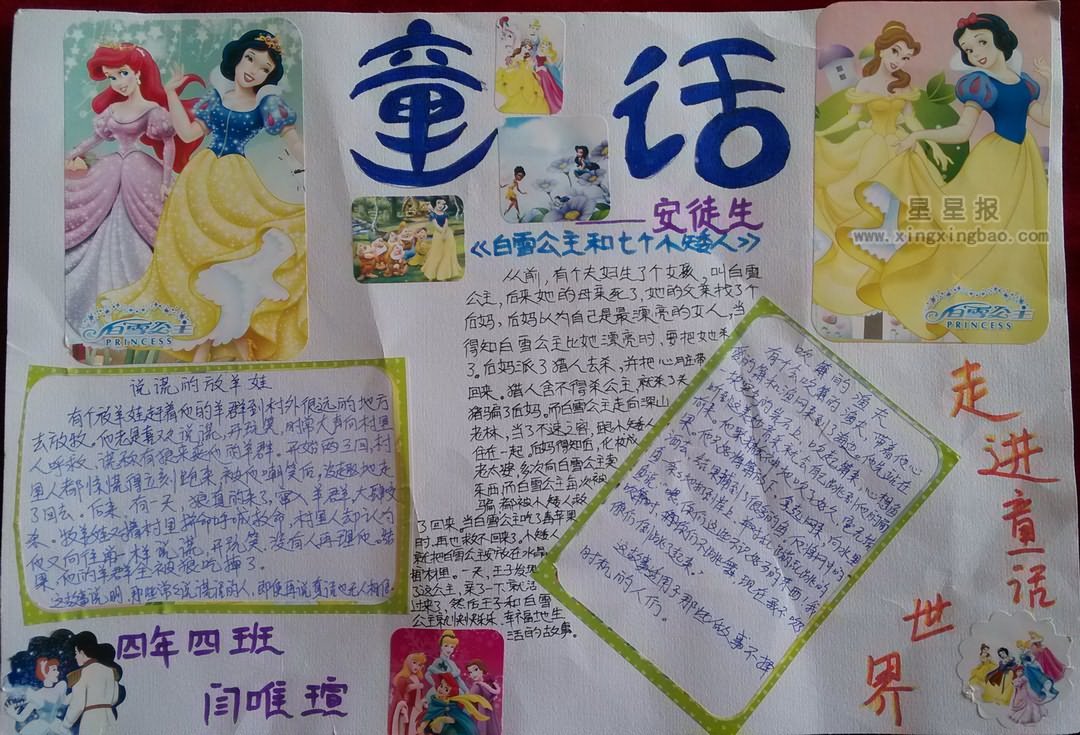 童话
——安徒生
《白雪公主和七个小矮人》
从前，有个夫妇生了个女孩。叫白雪
公主，后来她的母亲死了，她的父亲找了个
后妈，后妈以为自己是最漂亮的女人，当
得知白雪公主比她漂亮时，要把她杀
了。后妈派了猎人去杀，并把心脏带
回来。猎人舍不得杀公主，就杀了头
猪骗了后妈。而白雪公主走向深山
老林，当了不速之客，跟小矮人
住在一起。后妈得知后，化妆成
老太婆，多次向白雪公主卖
东西，而白雪公主每次被
骗都被小矮人救
了回来，当白雪公主吃了毒苹果
时，再也救不回来了。小矮人
就把白雪公主被放在水晶
棺材里。一天，王子发现
了这公主，亲了一下就活
过来了，然后王子和白雪
公主就快快乐乐、幸福地生
活的故事。
说谎的放羊娃
有个放羊娃赶着他的羊群到村外很远的地方
去放牧。他老是喜欢说谎，开玩笑，时常大声向村里
人呼救，谎称有狼来袭他的羊群。开始两三回，村
里人都惊慌得立刻跑来，被他嘲笑后，没趣地走
了回去。后来，有一天，狼真的来了，窜入羊群，大肆咬
杀。牧羊娃对着村里拼命呼喊救命，村里人却认为
他又向往常一样说谎，开玩笑，没有人再理他。结
果，他的羊群全被狼吃掉了。
这故事说明，那些常常说谎话的人，即使再说真话也无人相信。
吹箫的渔夫
有个会吹箫的渔夫，带着他心
爱的箫和渔网来到了海边。他先站在
块突出的岩石上，吹起箫来，心想鱼
听到这
这故事适用于那些做事不择
时机的人们。
四年四班
闫唯瑄
走进童话
世界
白雪公主
PRINCESS
白雪公主
PRINCESS
星星报
www.xingxingbao.com